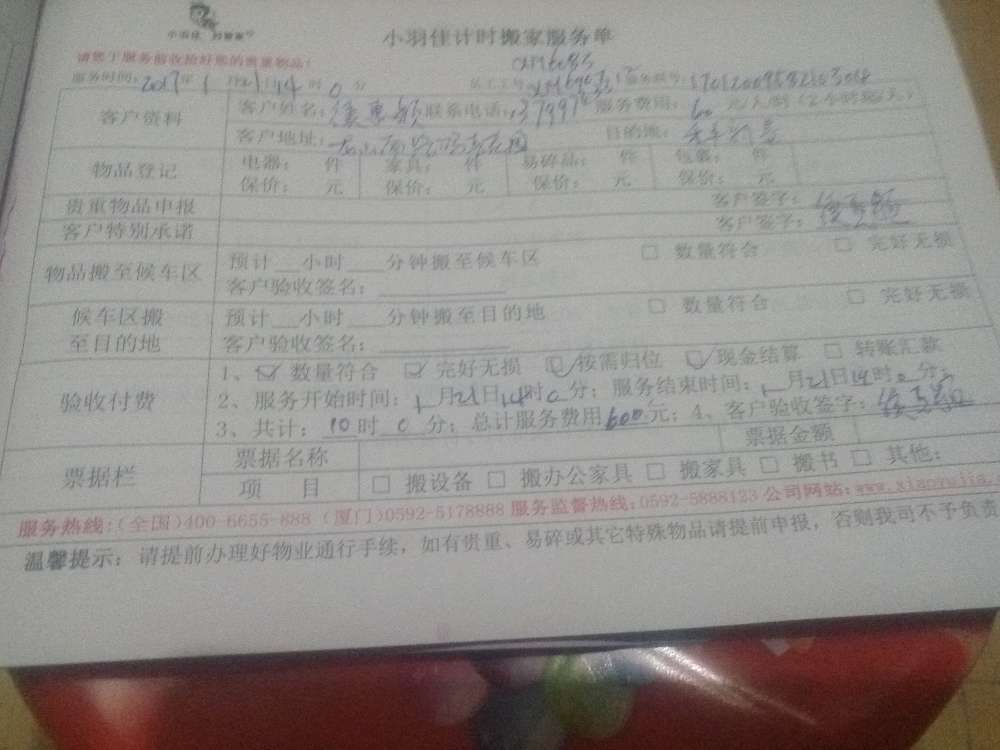 小羽佳 的管家
小羽佳计时搬家服务单
请您于服务前收拾好您的贵重物品!
服务时间:2017年1月21日14时0分
客户资料 客户姓名: 联系电话: 服务费用:60元/人/时(2小时起/天)
客户地址: 目的地:
物品登记 电器: 件 家具: 件 易碎品: 件 包裹: 件
保价: 元 保价: 元 保价: 元 保价: 元
贵重物品申报 客户签字:
客户特别承诺 客户签字:
物品搬至候车区 预计__小时___分钟搬至候车区 □ 数量符合 □ 完好无损
客户验收签名:
候车区搬至目的地 预计__小时___分钟搬至目的地 □ 数量符合 □ 完好无损
客户验收签名:
验收付费 1、☑ 数量符合 ☑ 完好无损 ☑ 按需归位 ☑ 现金结算 □ 转账汇款
2、服务开始时间:1月21日14时0分;服务结束时间:1月21日14时0分;
3、共计:10时0分;总计服务费用600元;4、客户验收签字:
票据栏 票据名称 票据金额
项 目 □ 搬设备 □ 搬办公家具 □ 搬家具 □ 搬书 □ 其他:
服务热线:(全国)400-6655-888 (厦门)0592-5178888 服务监督热线:0592-5888123 公司网站:www.xiaoyujia.
温馨提示:请提前办理好物业通行手续,如有贵重、易碎或其它特殊物品请提前申报,否则我司不予负责